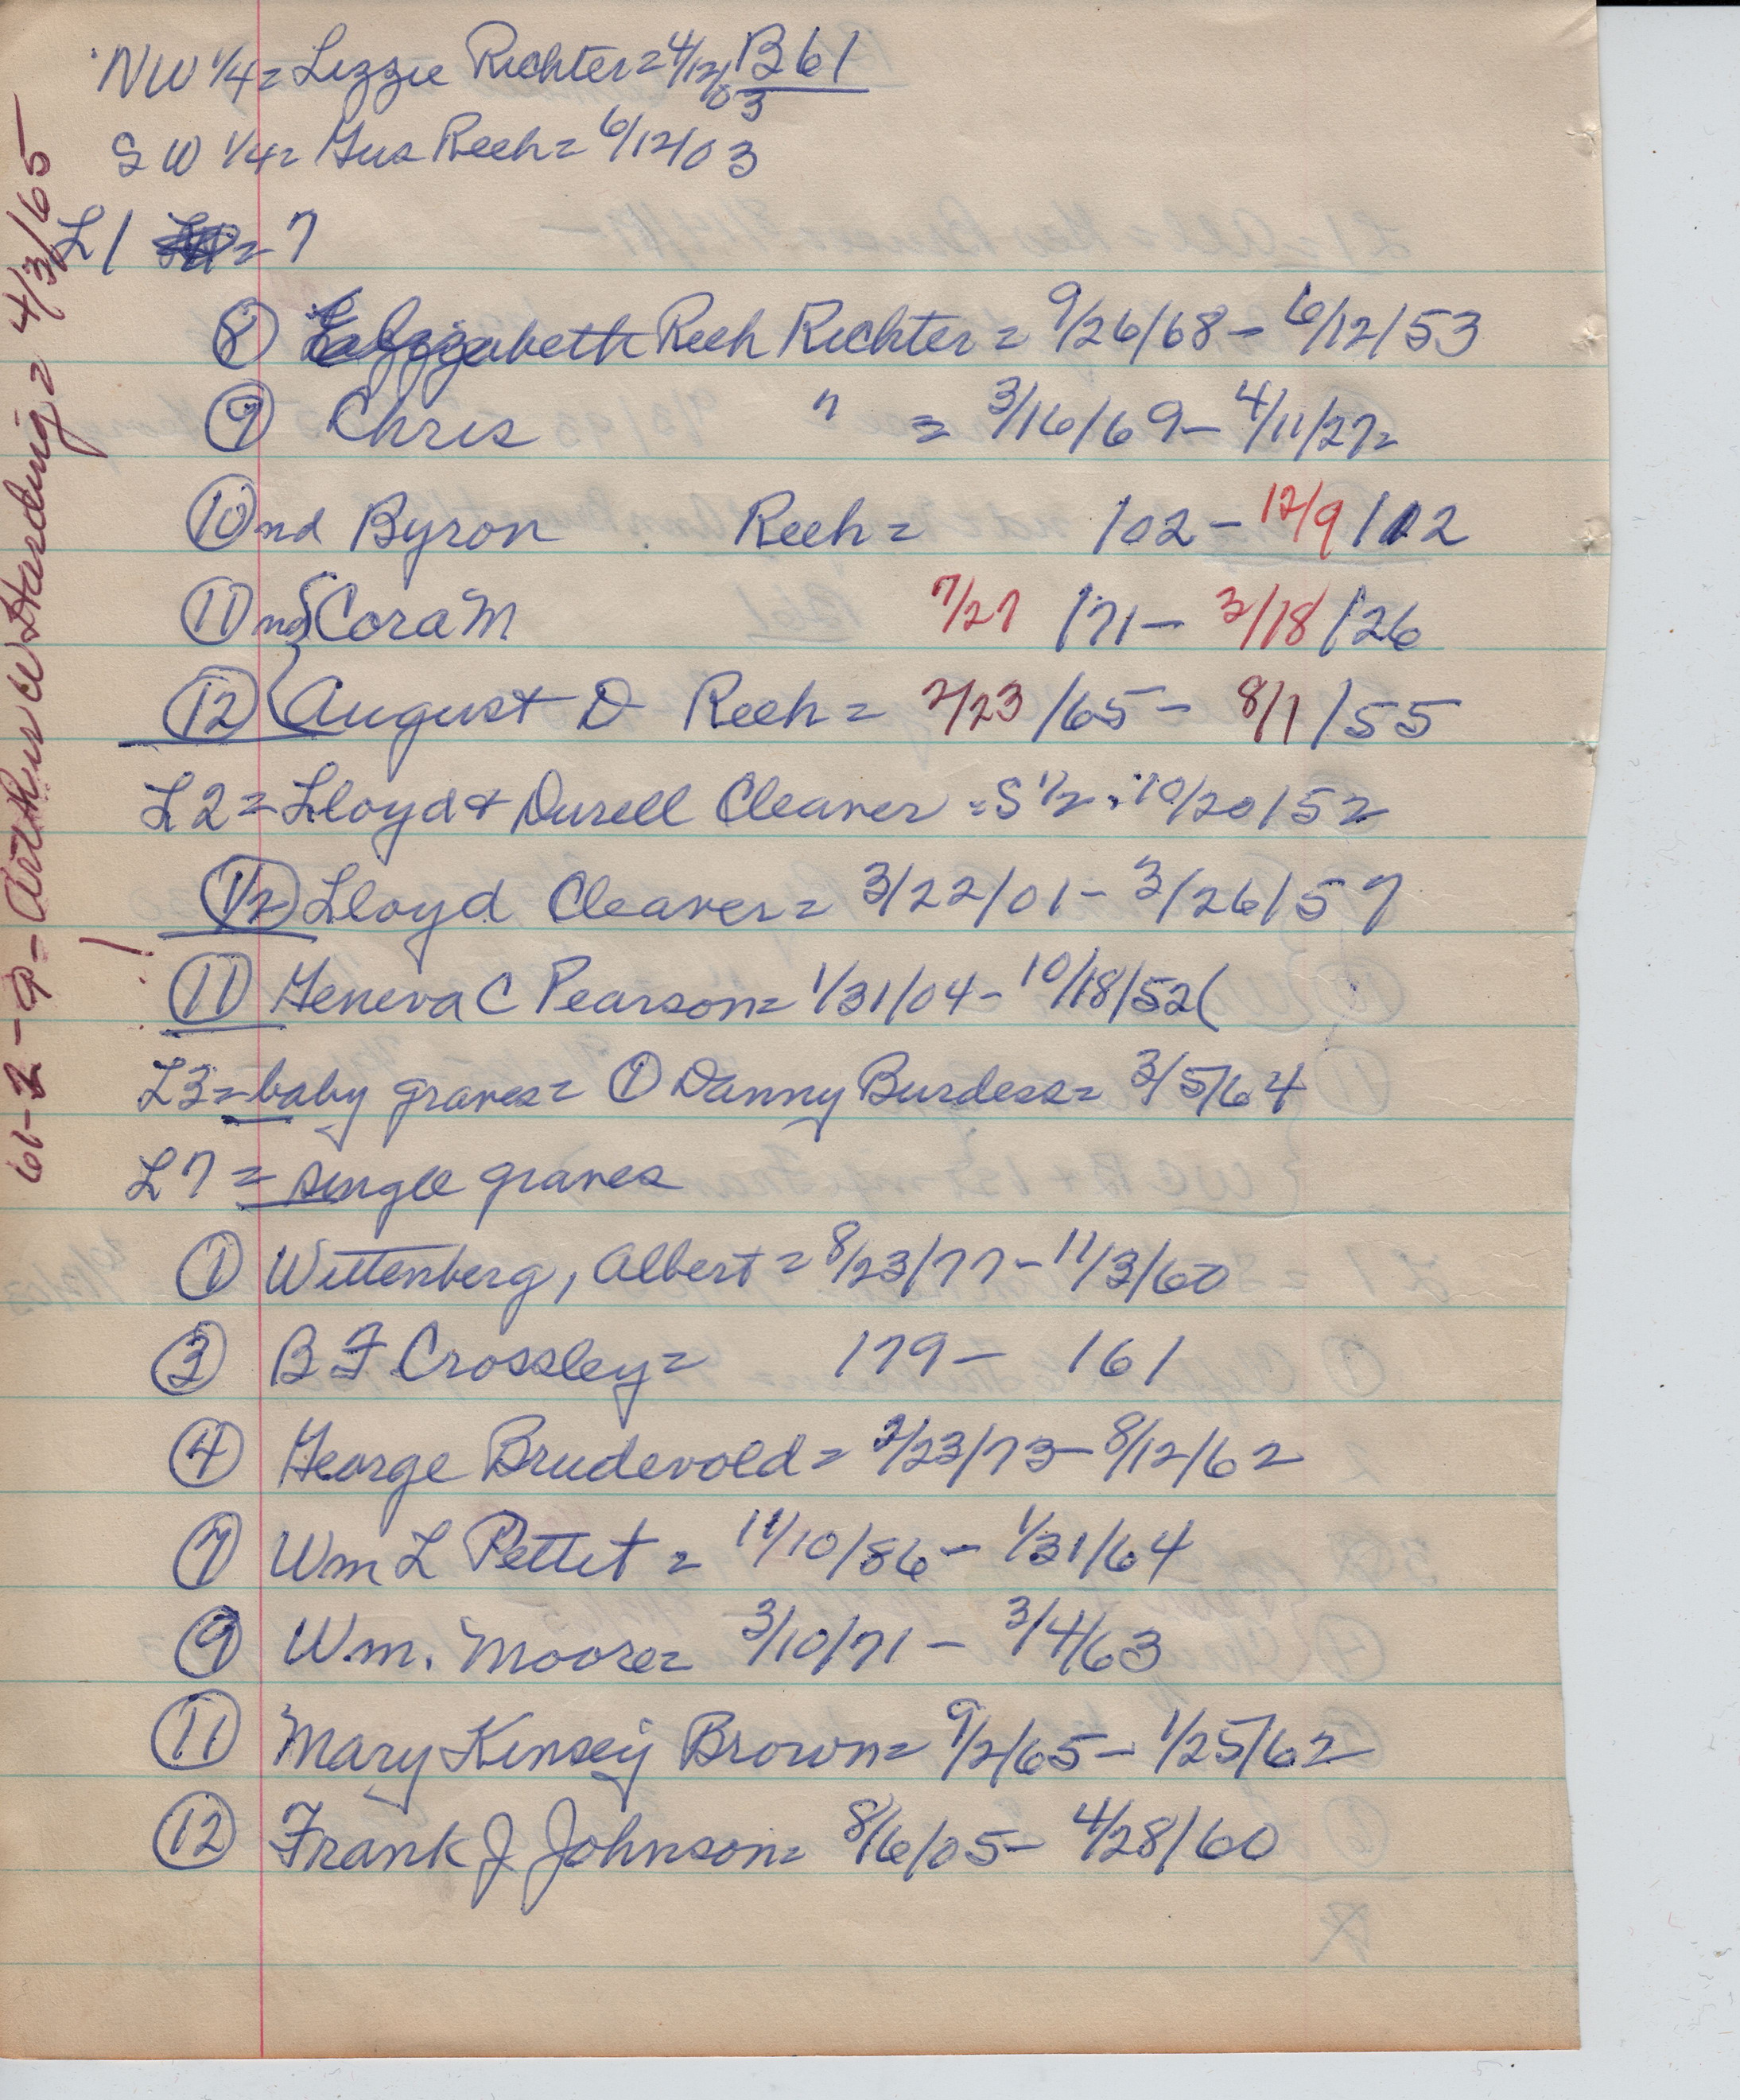 B61
NW 1/4 = Lizzie Richter = 4/12/03
SW 1/4 = Gus Reeh = 6/12/03
L1 = 7
⑧ Elizabeth Reeh Richter = 9/26/68 - 6/12/53
⑨ Chris " = 3/16/69 - 4/11/27 =
⑩ nd Byron Reeh = /02 - 12/9/02
⑪ nd Cora M 7/27/71 - 3/18/26
⑫ August D Reeh = 2/23/65 - 8/1/55
L2 = Lloyd & Durell Cleaver = S 1/2 = 10/20/52
1/2 Lloyd Cleaver = 3/22/01 - 3/26/57
⑪ Geneva C Pearson = 1/31/04 - 10/18/52 (
L3 = baby graves = ① Danny Burdess = 3/5/64
L7 = single graves
① Wittenberg, Albert = 8/23/77 - 11/3/60
③ B F Crossley = /79 - /61
④ George Brudevold = 2/23/73 - 8/12/62
⑦ Wm L Pettit = 11/10/86 - 1/31/64
⑨ Wm. Moore = 3/10/71 - 3/4/63
⑪ Mary Kinsey Brown = 9/2/65 - 1/25/62
⑫ Frank J Johnson = 8/6/05 - 4/28/60
61-2-9 = Arthur W Harding = 4/3/65